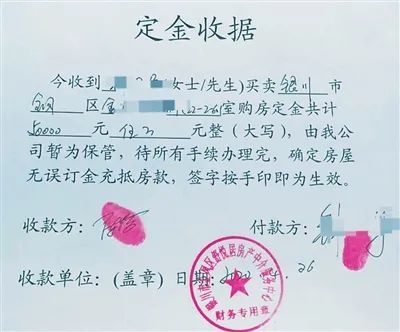 定金收据
今收到 (女士/先生)买卖银川市
金凤区 室购房定金共计
50000 元 伍万 元整（大写），由我公
司暂为保管，待所有手续办理完，确定房屋
无误订金充抵房款，签字按手印即为生效。
收款方： 付款方：
收款单位：（盖章）日期： 26
财务专用章